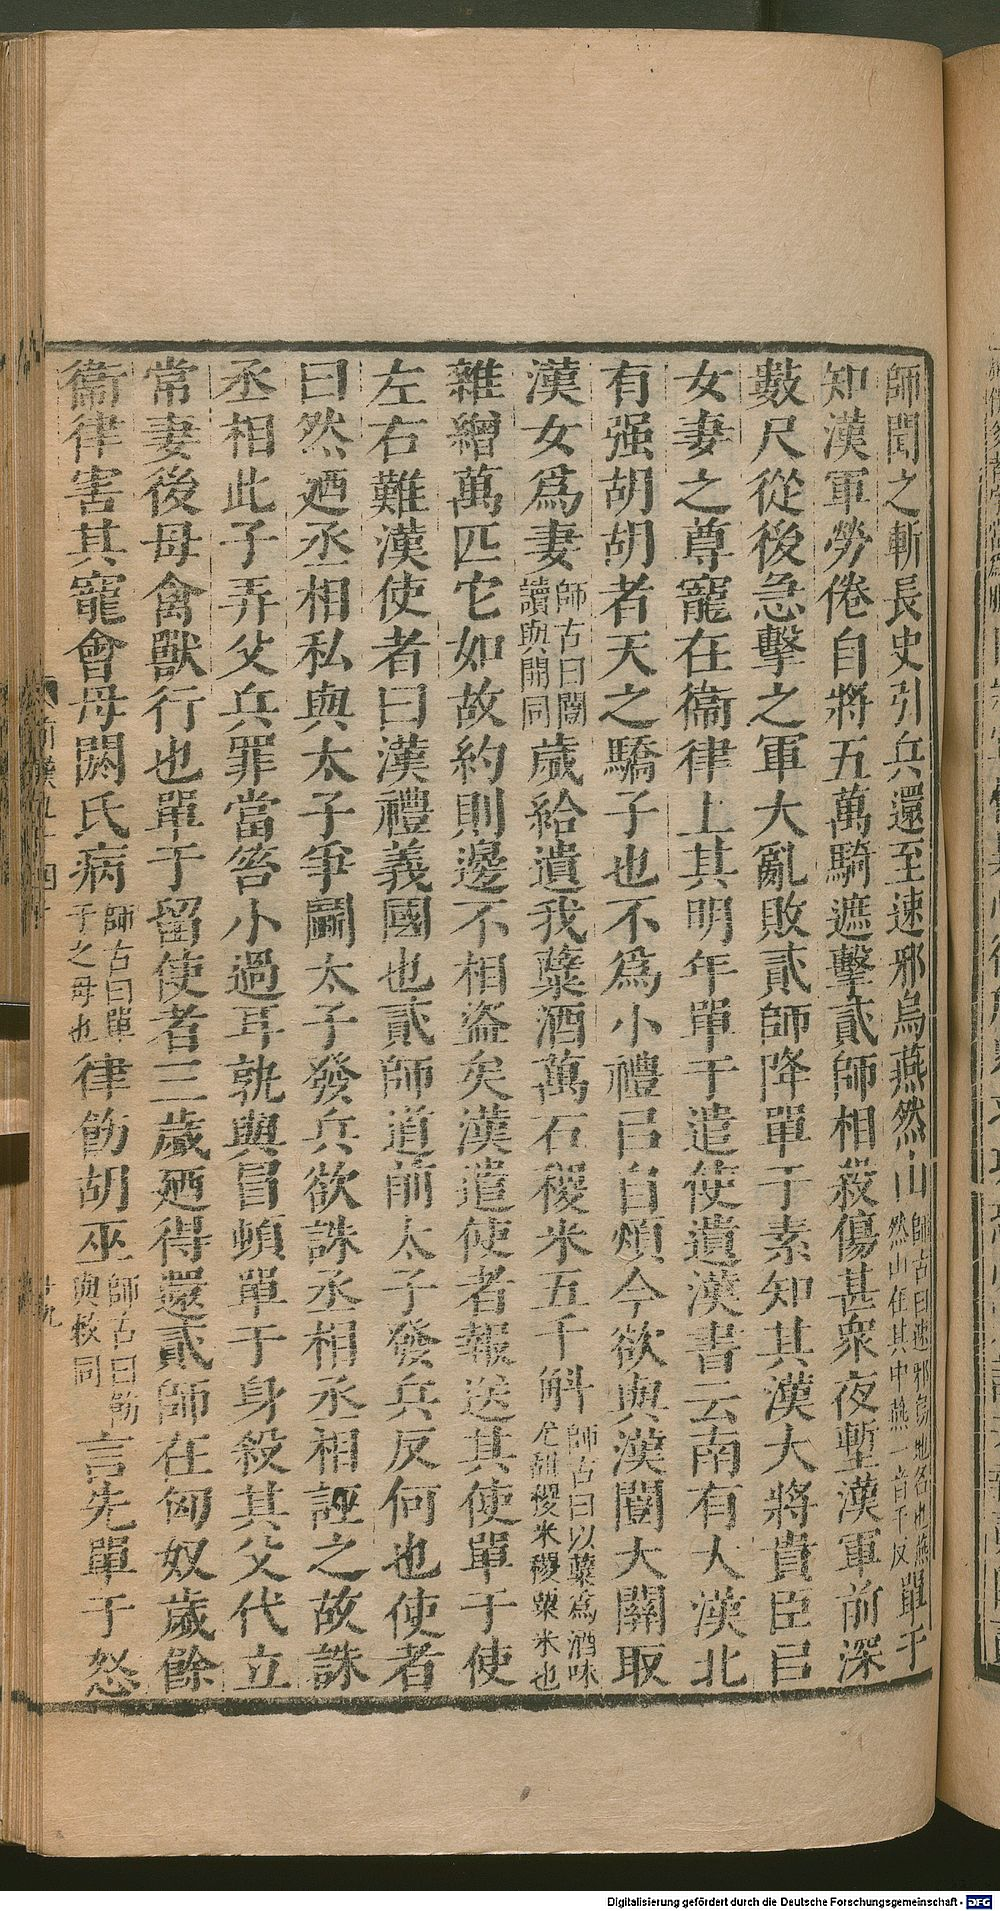 師聞之斬長史引兵還至速邪烏燕然山師古曰速邪烏地名也燕然山在其中燕一音千反單于
知漢軍勞倦自將五萬騎遮擊貳師相殺傷甚衆夜塹漢軍前深
數尺從後急擊之軍大亂敗貳師降單于素知其漢大將貴臣㠯
女妻之尊寵在衞律上其明年單于遣使遺漢書云南有大漢北
有强胡胡者天之驕子也不爲小禮㠯自煩今欲與漢闓大關取
漢女爲妻師古曰闓讀與開同歲給遺我糱酒萬石稷米五千斛師古曰以糱爲酒味尤甜稷米稷粟米也
雜繒萬匹它如故約則邊不相盜矣漢遣使者報送其使單于使
左右難漢使者曰漢禮義國也貳師道前太子發兵反何也使者
曰然廼丞相私與太子爭鬭太子發兵欲誅丞相丞相誣之故誅
丞相此子弄父兵罪當笞小過耳孰與冒頓單于身殺其父代立
常妻後母禽獸行也單于留使者三歲廼得還貳師在匈奴歲餘
衞律害其寵會母閼氏病師古曰單于之母也律飭胡巫師古曰飭與敕同言先單于怒
前漢九十四上
廿九
Digitalisierung gefördert durch die Deutsche Forschungsgemeinschaft - DFG